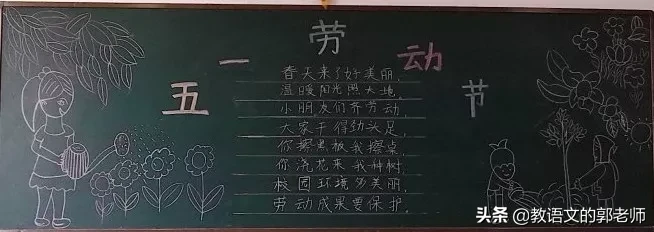 五一劳动节
春天来了好美丽，
温暖阳光照大地，
小朋友们齐劳动，
大家干得劲头足，
你擦黑板我擦桌，
你浇花来我种树，
校园环境多美丽，
劳动成果要保护。
头条 @教语文的郭老师